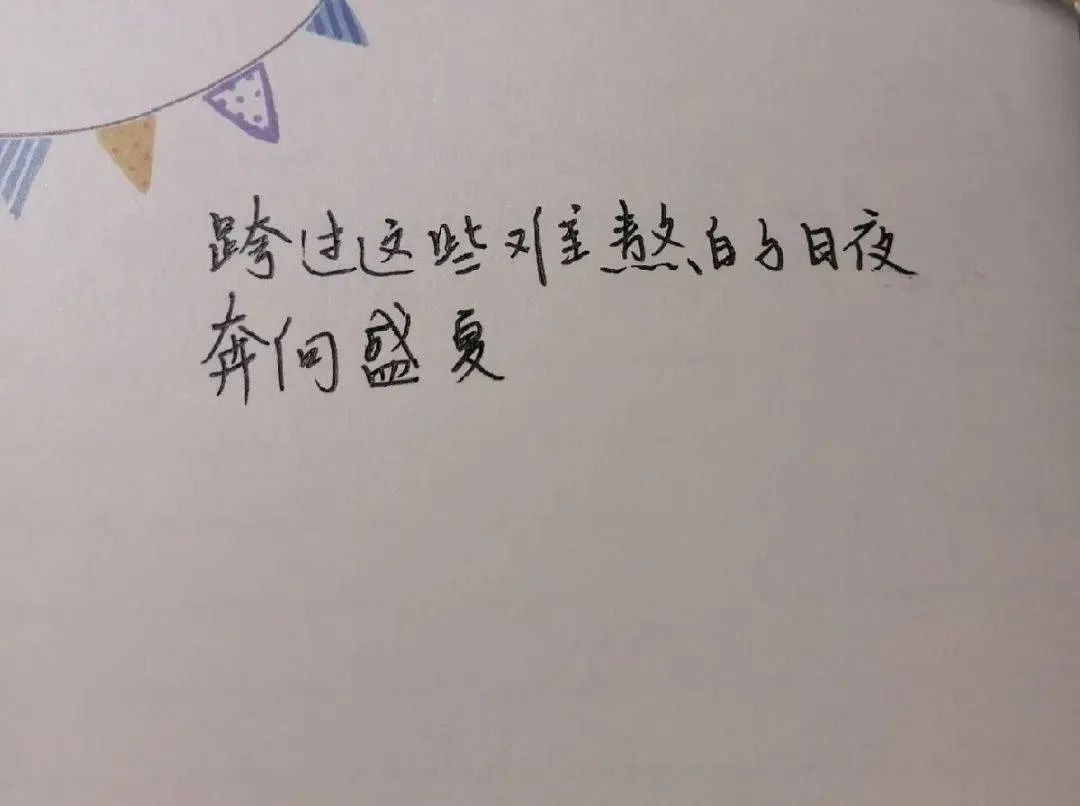 跨过这些难熬的日夜
奔向盛夏